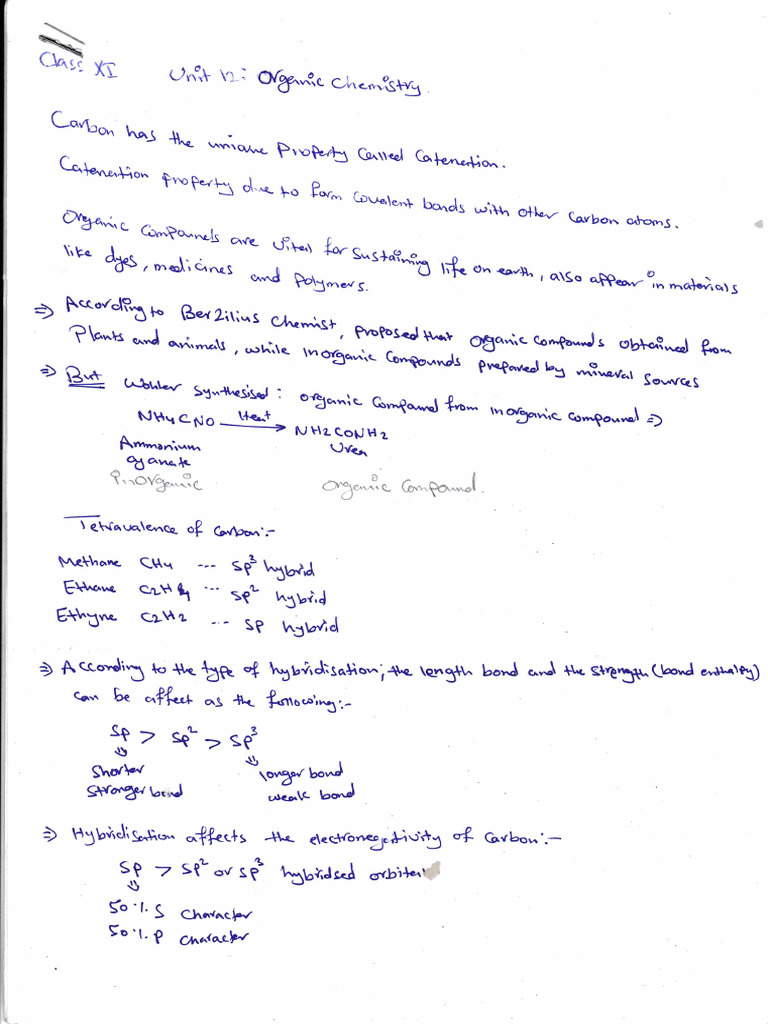 Class XI Unit 12: Organic Chemistry.
Carbon has the unique Property Called Catenation.
Catenation property due to form Covalent bonds with other Carbon atoms.
Organic Compounds are vital for sustaining life on earth, also appear in materials
like dyes, medicines and Polymers.
⇒ According to Berzilius Chemist, proposed that organic compounds obtained from
Plants and animals, while inorganic Compounds prepared by mineral sources
⇒ But Wohler synthesised: organic Compound from inorganic compound ⇒
NH4CNO Heat → NH2CONH2
Ammonium Urea
cyanate
Inorganic Organic Compound.
Tetravalence of Carbon:-
Methane CH4 --- sp³ hybrid
Ethane C2H4 --- sp² hybrid
Ethyne C2H2 --- sp hybrid
⇒ According to the type of hybridisation, the length bond and the strength (bond enthalpy)
can be affect as the following:-
sp > sp² > sp³
⇓ ⇓
Shorter longer bond
stronger bond weak bond
⇒ Hybridisation affects the electronegativity of Carbon:-
sp > sp² or sp³ hybridsed
⇓
50% S Character
50% P Character